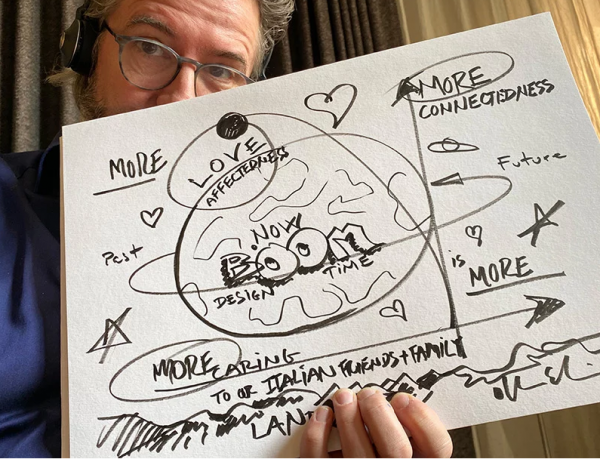 MORE
CONNECTEDNESS
MORE
LOVE
AFFECTEDNESS
Future
Past
.NOW
BOOM
DESIGN TIME
is
MORE
MORE CARING
TO OUR ITALIAN FRIENDS + FAMILY